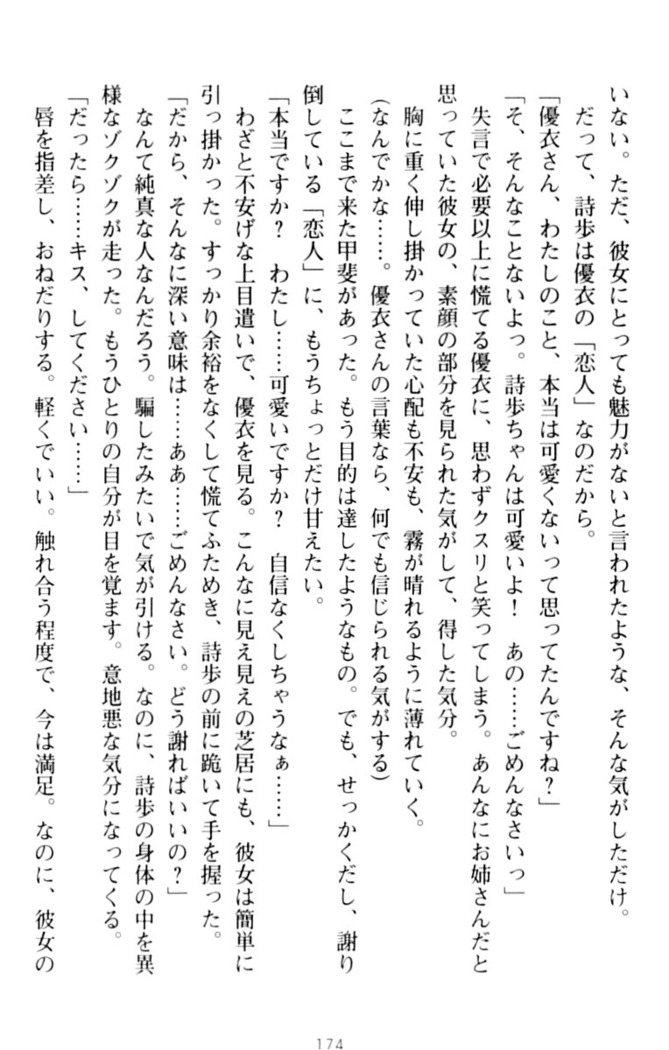 いない。ただ、彼女にとっても魅力がないと言われたような、そんな気がしただけ。
　だって、詩歩は優衣の「恋人」なのだから。
「優衣さん、わたしのこと、本当は可愛くないって思ってたんですね？」
「そ、そんなことないよっ。詩歩ちゃんは可愛いよ！　あの……ごめんなさいっ」
　失言で必要以上に慌てる優衣に、思わずクスリと笑ってしまう。あんなにお姉さんだと
思っていた彼女の、素顔の部分を見られた気がして、得した気分。
　胸に重く伸し掛かっていた心配も不安も、霧が晴れるように薄れていく。
（なんでかな……。優衣さんの言葉なら、何でも信じられる気がする）
　ここまで来た甲斐があった。もう目的は達したようなもの。でも、せっかくだし、謝り
倒している「恋人」に、もうちょっとだけ甘えたい。
「本当ですか？　わたし……可愛いですか？　自信なくしちゃうなぁ……」
　わざと不安げな上目遣いで、優衣を見る。こんなに見え見えの芝居にも、彼女は簡単に
引っ掛かった。すっかり余裕をなくして慌てふためき、詩歩の前に跪いて手を握った。
「だから、そんなに深い意味は……ああ……ごめんなさい。どう謝ればいいの？」
　なんて純真な人なんだろう。騙したみたいで気が引ける。なのに、詩歩の身体の中を異
様なゾクゾクが走った。もうひとりの自分が目を覚ます。意地悪な気分になってくる。
「だったら……キス、してください……」
　唇を指差し、おねだりする。軽くでいい。触れ合う程度で、今は満足。なのに、彼女の
174